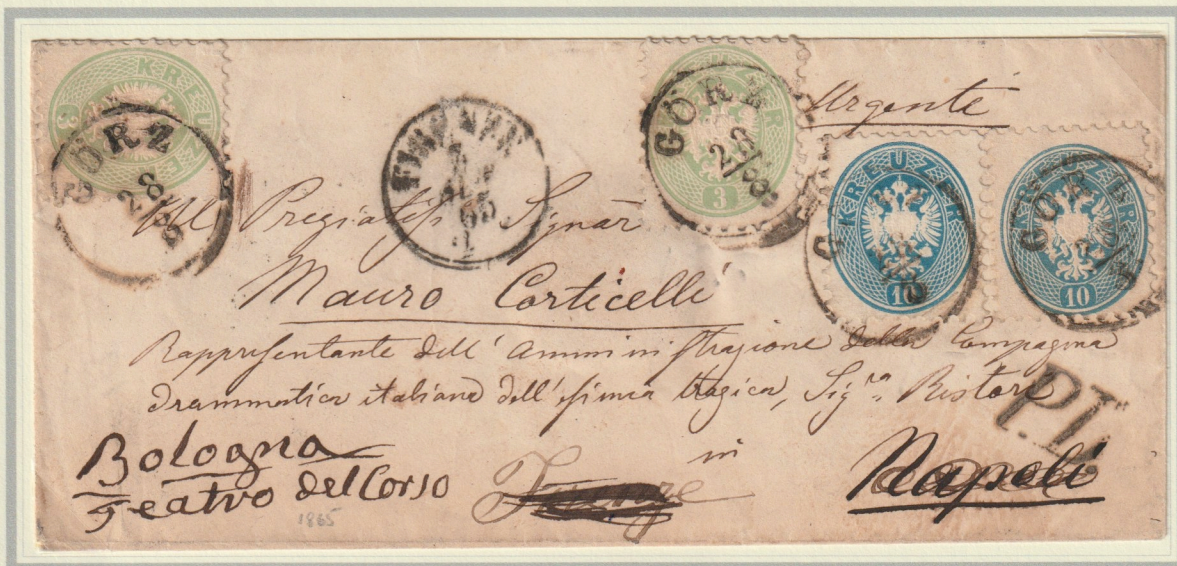 KREUZER
3
GÖRZ
28/8
FIRENZE
65
KREUZER
3
GÖRZ
28/8
Urgente
KREUZER
10
GÖRZ
KREUZER
10
GÖRZ
Pregiatiss Signor
Mauro Corticelli
Rappresentante dell' amministrazione della Compagnia
drammatica italiana dell' esimia tragica, Sig.ra Ristori
P.D.
in
Bologna
Teatro del Corso
Firenze
Napoli
1865